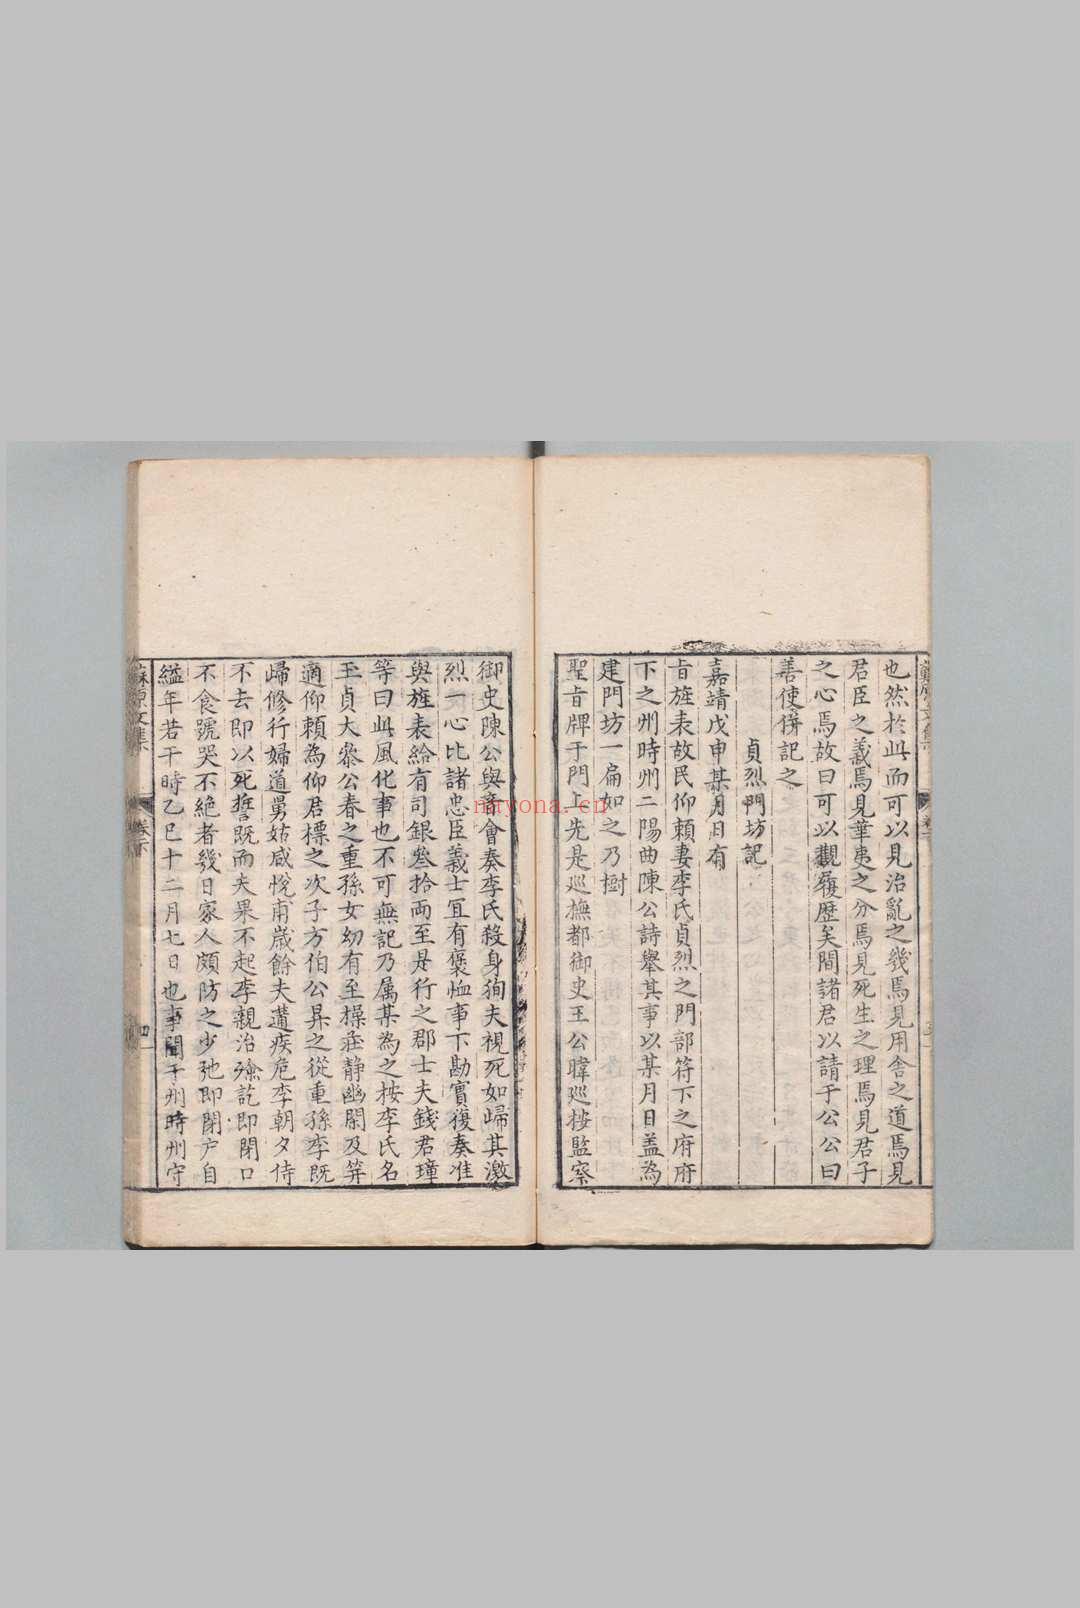 也然於此而可以見治亂之幾焉見用舍之道焉見
君臣之義焉見華夷之分焉見死生之理焉見君子
之心焉故曰可以觀履歷矣間諸君以請于公公曰
善使傍記之
貞烈門坊記
嘉靖戊申某月日有
旨旌表故民仰賴妻李氏貞烈之門部符下之府府
下之州時州二陽曲陳公詩舉其事以某月日盖為
建門坊一扁如之乃樹
聖旨牌于門上先是巡撫都御史王公暐巡按監察
御史陳公與音會奏李氏殺身殉夫視死如歸其激
烈一心比諸忠臣義士宜有褒恤事下勘實復奏准
與旌表給有司銀叄拾兩至是行之郡士夫錢君璋
等曰此風化事也不可無記乃属某為之按李氏名
玉貞大叅公春之重孫女幼有至操莊静幽閑及笄
適仰賴為仰君標之次子方伯公昇之從重孫李既
歸修行婦道舅姑咸悅甫歲餘夫遘疾危李朝夕侍
不去即以死誓既而夫果不起李親治殮訖即閉口
不食號哭不絶者幾日家人頗防之少弛即閉户自
縊年若干時乙巳十二月七日也事聞于州時州守
蘇原文集
卷下
nayona.cn